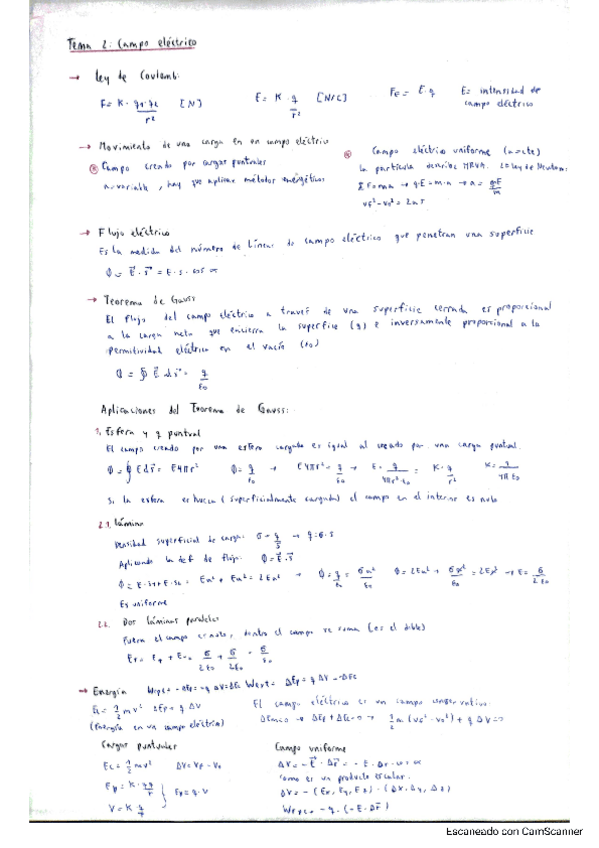 Tema 2: Campo eléctrico
→ Ley de Coulomb:
F = K · q1·q2 / r² [N]   E = K · q / r² [N/C]   Fe = E·q   E = intensidad de campo eléctrico
→ Movimiento de una carga en un campo eléctrico
Campo creado por cargas puntuales
a variable, hay que aplicar métodos energéticos
Campo eléctrico uniforme (a=cte)
la partícula describe MRUA. 2ª ley de Newton:
ΣF=ma → q·E=m·a → a = q·E / m
→ Flujo eléctrico
Es la medida del número de líneas de campo eléctrico que penetran una superficie
Φ = E · S = E · S · cos α
→ Teorema de Gauss
El flujo del campo eléctrico a través de una superficie cerrada es proporcional
a la carga neta que encierra la superficie (q) e inversamente proporcional a la
permitividad eléctrica en el vacío (ε0)
Φ = ∮ E ds = q / ε0
Aplicaciones del Teorema de Gauss:
1. Esfera y q puntual
El campo creado por una esfera cargada es igual al creado por una carga puntual.
Φ = ∮ E ds = E4πr²   Φ = q / ε0 → E4πr² = q / ε0 → E = q / 4πr²·ε0 = K · q / r²
Si la esfera es hueca (superficialmente cargada) el campo en el interior es nulo
2.1. Lámina
Densidad superficial de carga: σ = q / s → q = σ·s
Aplicando la def de flujo: Φ = E·S
Es uniforme
2.2. Dos láminas paralelas
Fuera el campo es nulo, dentro el campo se suma (es el doble)
σ / 2ε0 + σ / 2ε0 = σ / ε0
→ Energía
Ec = 1/2 m v²   ΔEp = q ΔV
(Energía en un campo eléctrico)
El campo eléctrico es un campo conservativo
Cargas puntuales
Ec = 1/2 mv²
Ep = q·V
V = K q / r
Campo uniforme
como es un producto escalar.
ΔV = - (Ex, Ey, Ez) · (Δx, Δy, Δz)
Escaneado con CamScanner